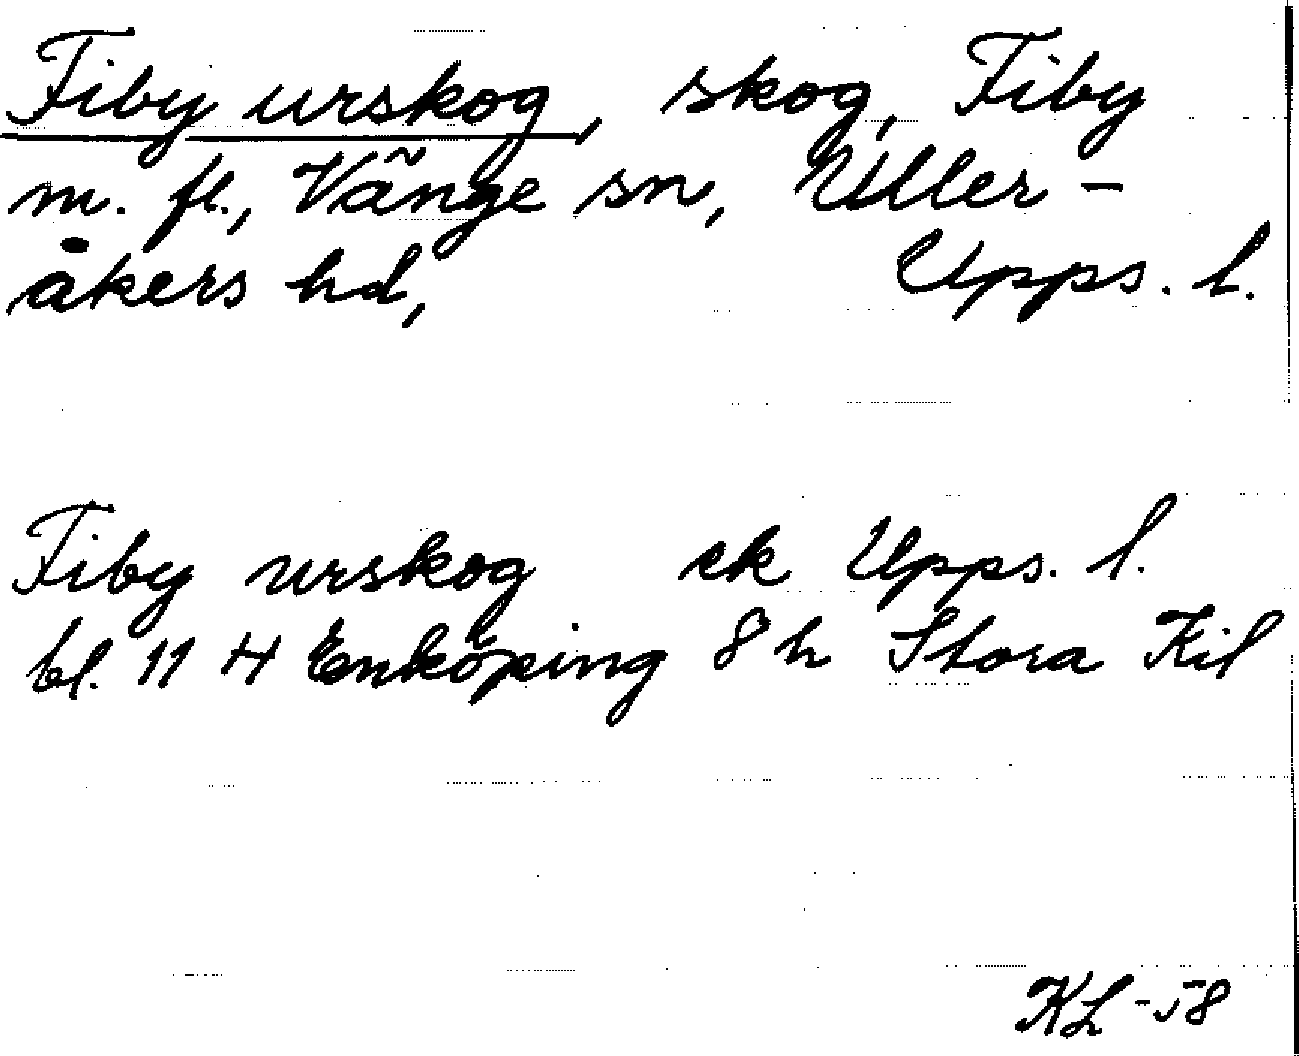 Fiby urskog, skog, Fiby
m. fl., Vänge sn, Uller-
åkers hd, Upps. l.
Fiby urskog ek Upps. l.
bl. 11 H Enköping 8 h Stora Kil
KL -58